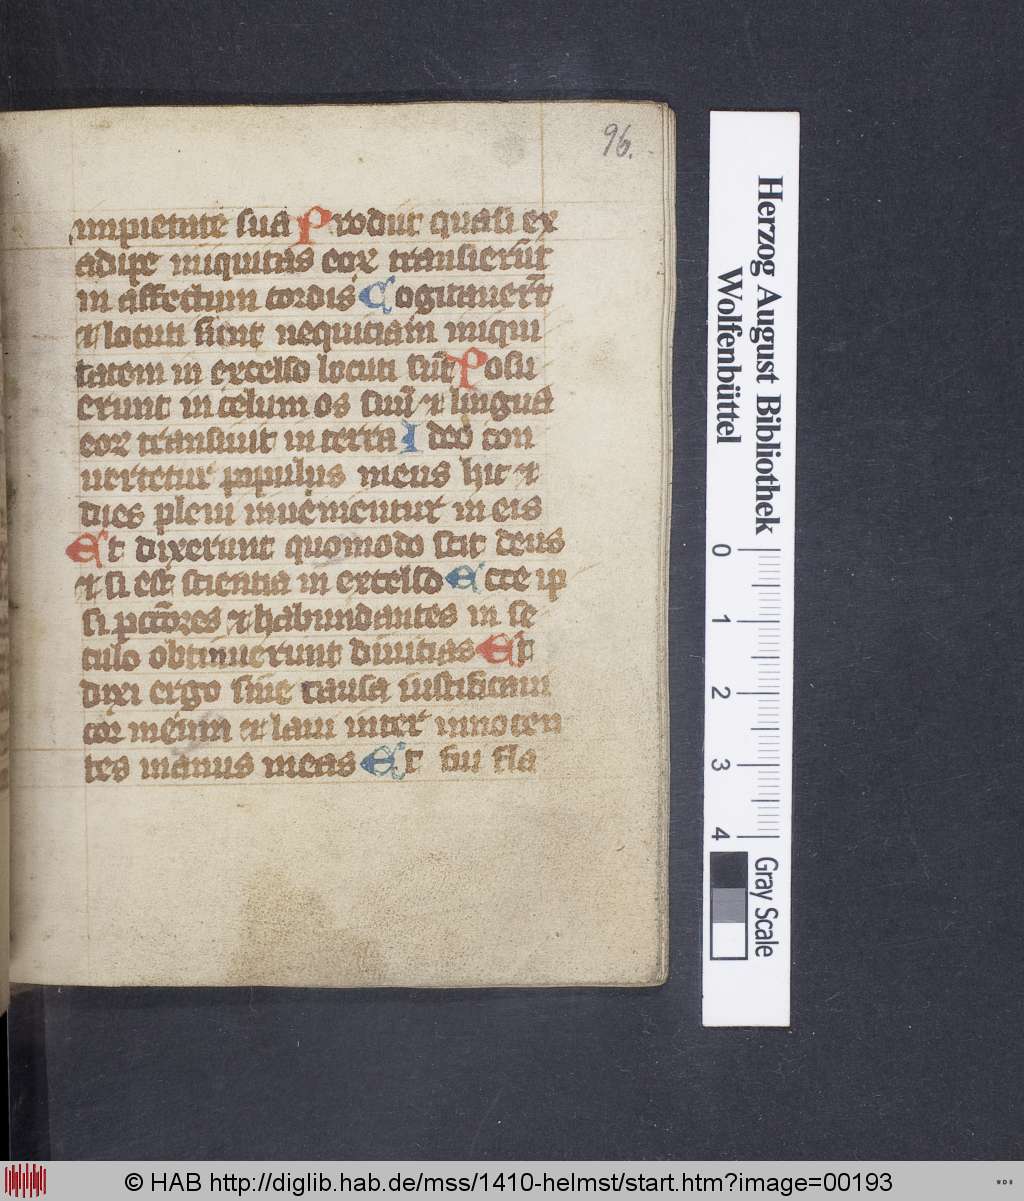 96.
impietate sua Prodiit quasi ex
adipe iniquitas eoꝝ transierūt
in affectum cordis Cogitauerūt
⁊ locuti sunt nequiciam iniqui
tatem in excelso locuti sūt Posu
erunt in celum os suū ⁊ lingua
eoꝝ transiuit in terra Ideo con
uertetur populus meus hic ⁊
dies pleni inuenientur in eis
Et dixerunt quomodo scit deus
⁊ si est scientia in excelso Ecce ip
si pctōres ⁊ habundantes in se
culo obtinuerunt diuitias Et
dixi ergo sine causa iustificaui
cor meum et laui inter innocen
tes manus meas Et fui fla
Herzog August Bibliothek
Wolfenbüttel
0 1 2 3 4
Gray Scale
© HAB http://diglib.hab.de/mss/1410-helmst/start.htm?image=00193